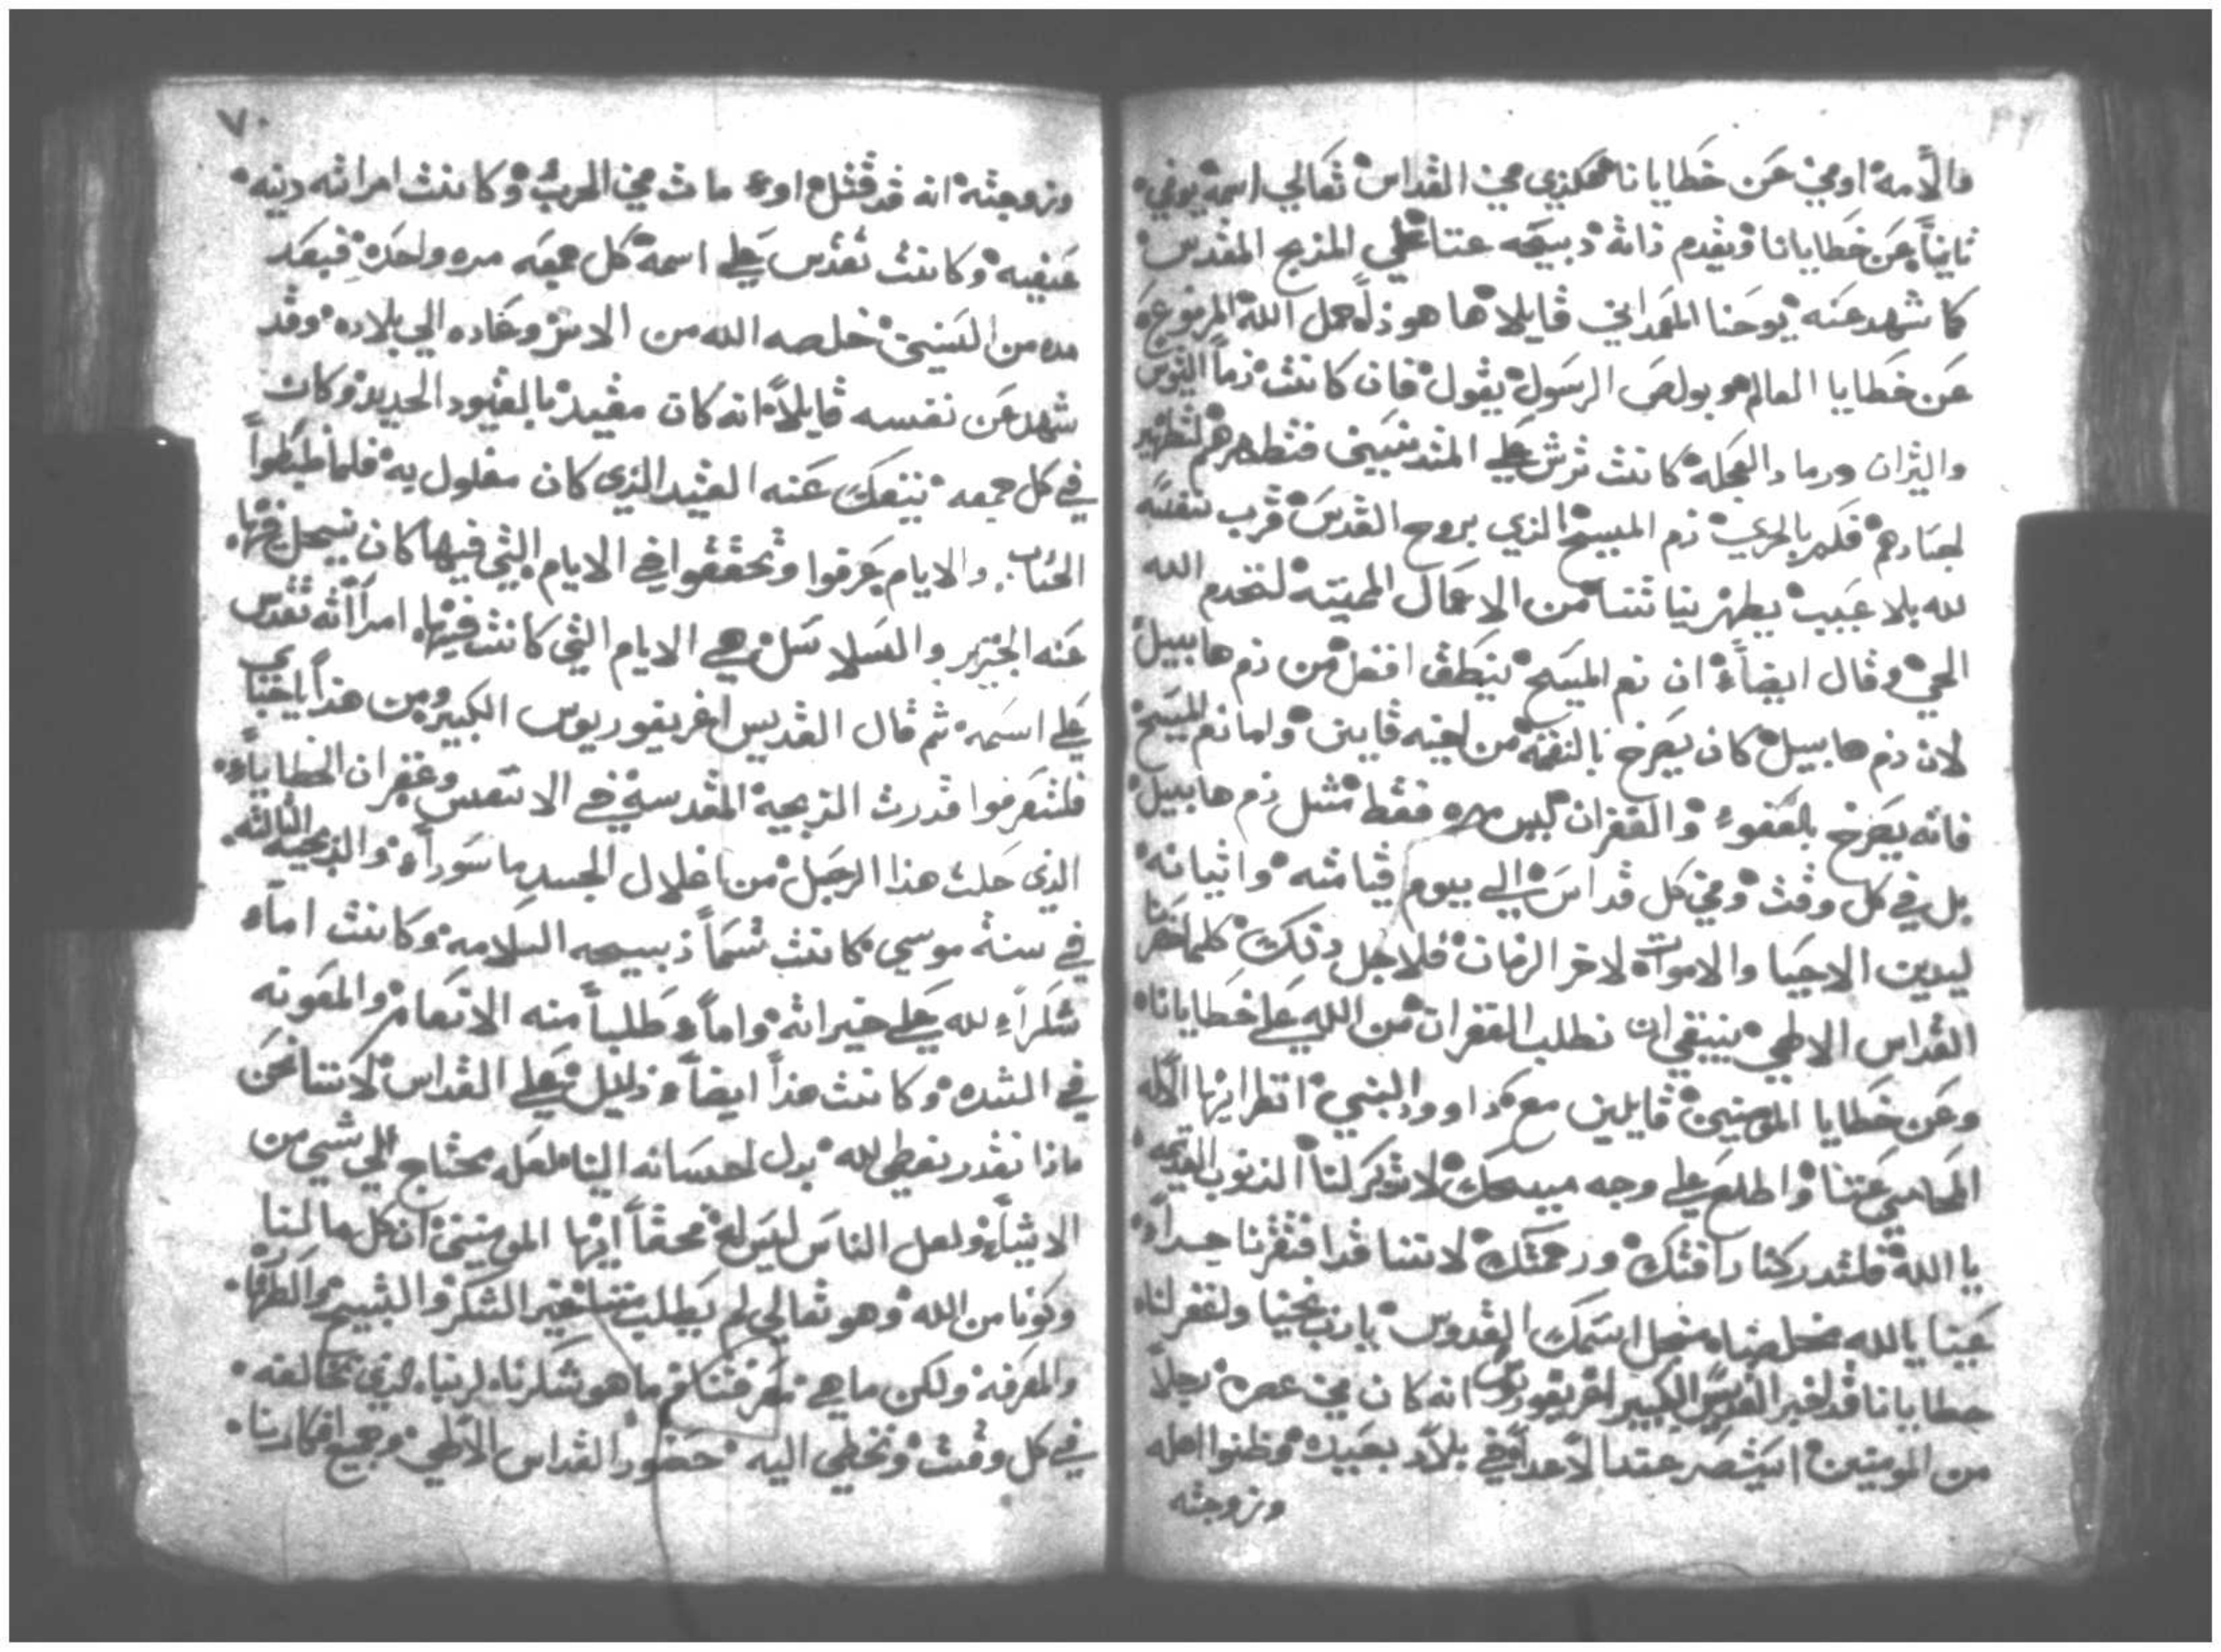 والآمه اوفي عن خطايانا هكذي في القداس تعالي اسمه يوفي
ثانياً عن خطايانا ويقدم ذاته دبيحه عننا علي المذبح المقدس
كما شهد عنه يوحنا المعمداني قايلاً ها هوذا حمل الله المرفوع
عن خطايا العالم هو بولص الرسول يقول فان كانت دماً التيوس
والثران ورماد العجله كانت ترش علي المتدنسين فتطهرهم لتطهير
اجسادهم فكم بالحري دم المسيح الذي بروح القدس قرب نفسه
لله بلا عيب يطهر نياتنا من الاعمال الميته لنخدم الله
الحي وقال ايضاً ان دم المسيح ينطق افضل من دم هابييل
لان دم هابييل كان يصرخ بالنقمه من اخيه قايين واما دم المسيح
فانه يصرخ بلعفوء والغفران ليس مره فقط مثل دم هابييل
بل في كل وقت وفي كل قداس الي ييوم قيامته واتيانه
ليدين الاحيا والاموات لاخر الزمان فلاجل ذلك كلما حضرنا
القداس الاطهي ينبغي ان نطلب الغفران من الله علي خطايانا
وعن خطايا المومنين قايلين مع داوود النبي انظر ايها الاله
المحامي عننا واطلع علي وجه مسيحك لا تذكر لنا الذنوب القديمه
يا الله فلتدركنا رافتك ورحمتك لاننا قد افتقرنا جداً
عينا يالله مخلصنا من اجل اسمك القدوس يا رب نجينا واغفر لنا
خطايانا قد اخبر القديس الكبير اغريغوريوس انه كان في عصره رجلاً
من المومنين استيصر عند الاعدا في بلاد بعيده وظنوا اهله
وزوجته
٧٠
وزوجته انه قد قتل اوء مات في الحرب وكانت امراته دينه
عفيفه وكانت تقدس علي اسمه كل جمعه مره واحده فبعد
مده من السنين خلصه الله من الاسر وعاده الي بلاده وقد
شهد عن نفسه قايلاً انه كان مقيد بالقيود الحديد وكان
في كل جمعه ينفك عنه القيد الذي كان مغلول به فلما ظبطوا
الحساب والايام عرفوا وتحققوا في الايام التي فيها كان ينحل
عنه الجنزير والسلاسل هي الايام التي كانت فيها امراته تقدس
علي اسمه ثم قال القديس اغريغوريوس الكبير ومن هذا يا احباي
فلتعرفوا قدرت الذبيحة المقدسة في الانفس وغفران الخطايا
الذي حلت هذا الرجل من اغلال الجسد ماسوراً والذبيحه الثالثه
في سنة موسي كانت تسماً ذبيحه السلامه وكانت اماء
شكراء لله علي خيراته واماً طلباً منه الانعام والمعونه
في الشده وكانت هذا ايضاً دليل علي القداس لاننا نحن
ماذا نقدر نعطي لله بدل احسانه الينا لعله محتاج الي شي من
الاشياء ولعل الناس ليس له محقاً ايها المومنين ان كل ما لنا
وكونا من الله وهو تعالي لم يطلب مننا غير الشكر والتسبيح
والمعرفه ولكن ما هي معرفتنا ما هو شكرنا لربنا الذي نخالفه
في كل وقت ونخطي اليه حضور القداس الاطهي وجميع افكارنا